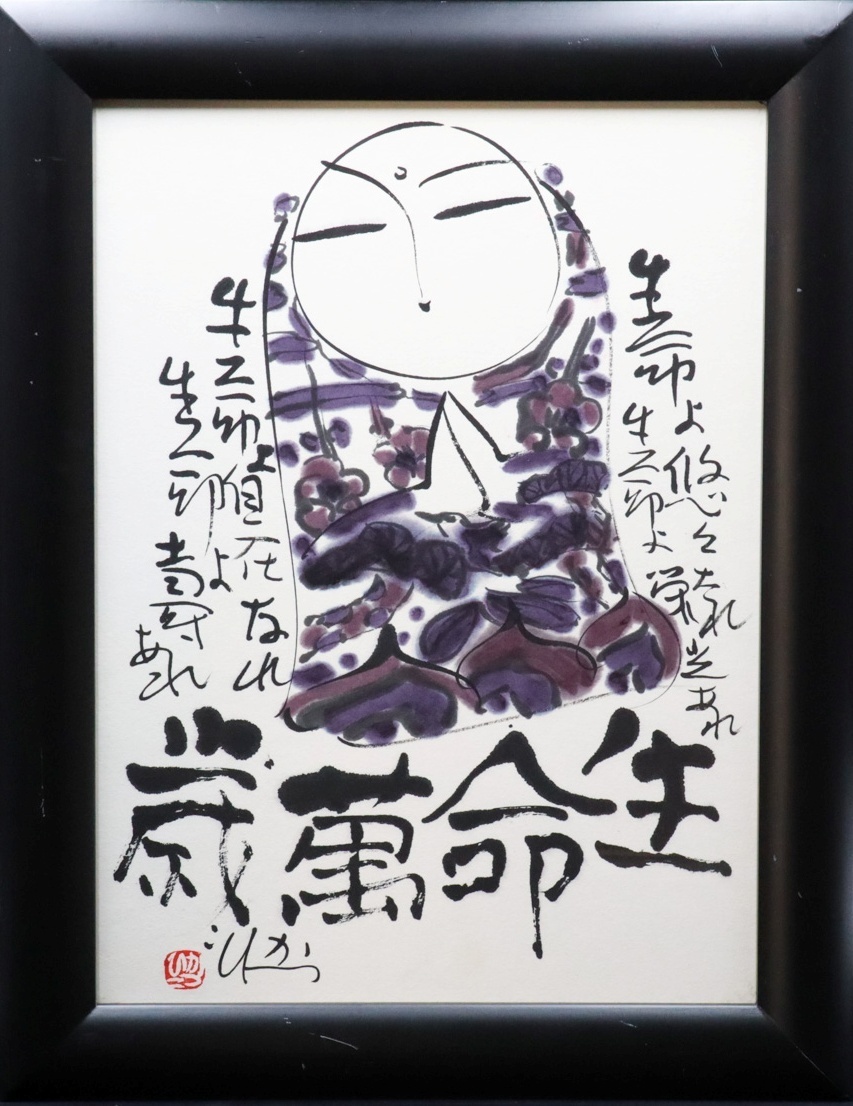 生命よ悠々たれ
生命よ栄光あれ
生命よ自在なれ
生命よ
あれ
生命萬歳